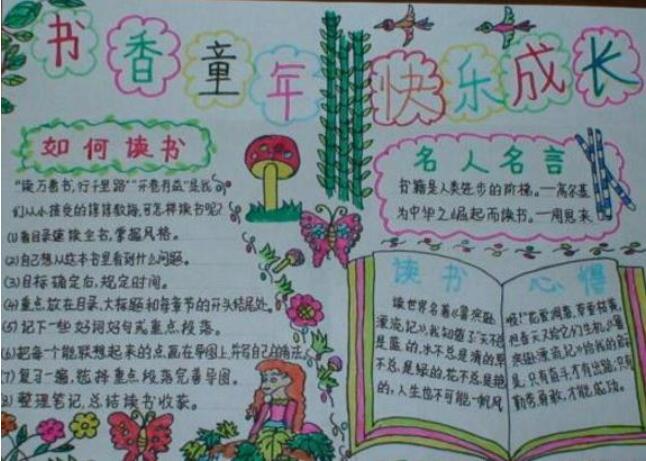 书香童年 快乐成长
如何读书
"读万卷书,行千里路""开卷有益"是我
们从小接受的谆谆教诲,可怎样读书呢?
(1)看目录速读全书,掌握风格。
(2)自己想从这本书里看到什么问题。
(3)目标确定后,规定时间。
(4)重点放在目录、大标题和每章节的开头结尾处。
(5)记下一些好词好句或重点段落。
(6)把每个能联想起来的点画在导图上,并写自己的看法。
(7)复习一遍,选择重点段落完善导图。
整理笔记,总结读书收获。
名人名言
书籍是人类进步的阶梯。—高尔基
为中华之崛起而读书。—周恩来
读书心得
读世界名著《鲁宾逊
漂流记》我知道了"天不总
是蓝的,水不总是清的,草
不总是绿的,花不总是艳
的,人生也不可能一帆风
啦!"花要凋落,草要枯黄,
但春天又给它们生机。《鲁
宾逊漂流记》给我的
是,只有奋斗,才有出路,只有
勤劳勇敢,才能成功。